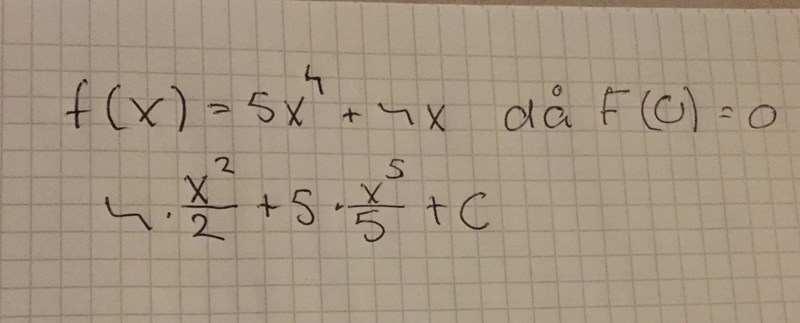 f(x) = 5x⁴ + 4x då F(0) = 0
4 · x²/2 + 5 · x⁵/5 + C